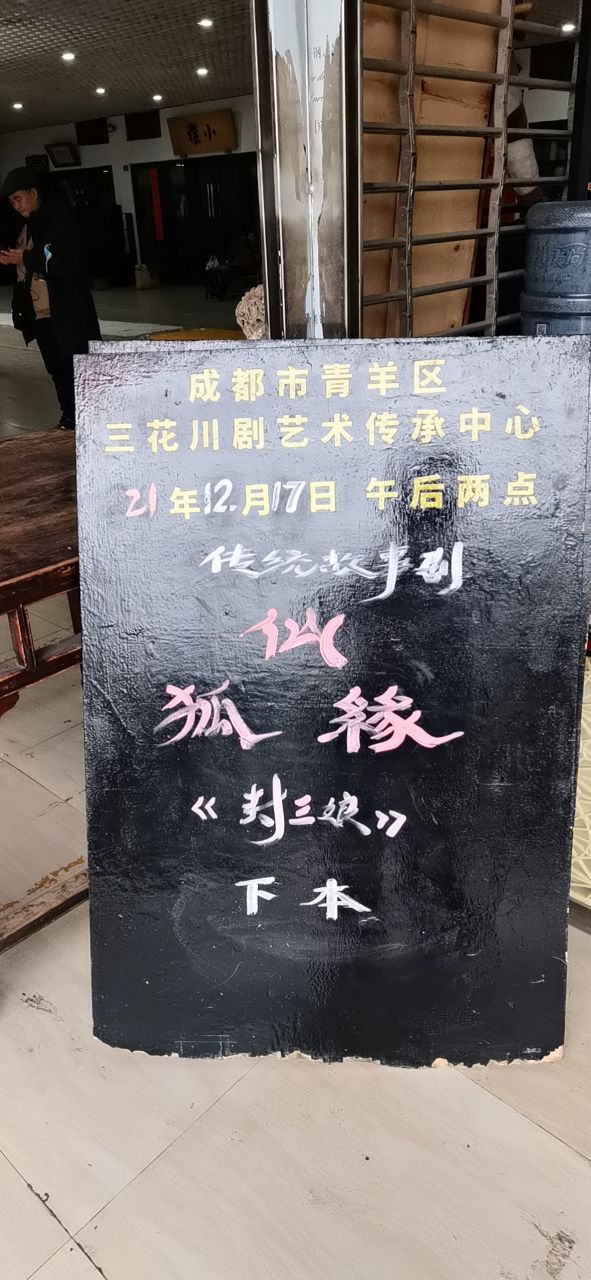 成都市青羊区
三花川剧艺术传承中心
21年12.月17日 午后两点
传统故事剧
仙
狐 緣
《封三娘》
下本